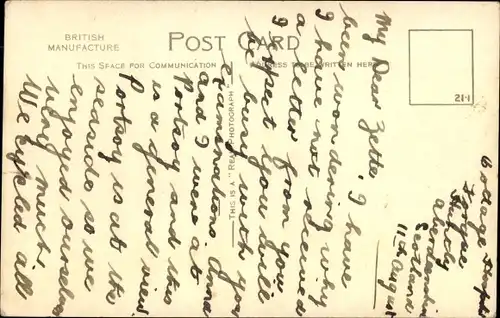 BRITISH
MANUFACTURE
POST CARD
THIS SPACE FOR COMMUNICATION
ADDRESS TO BE WRITTEN HERE
THIS IS A "REAL PHOTOGRAPH"
214
Cottage Hospital
Huntly
Aberdeenshire
Scotland
11th August
My Dear Zette, I have
been wondering why
I have not received
a letter from you
I expect you will
be busy with your
Examinations. Anna
and I were at
Portsoy and this
is a general view
Portsoy is at the
seaside so we
enjoyed ourselves
very much.
We cycled all